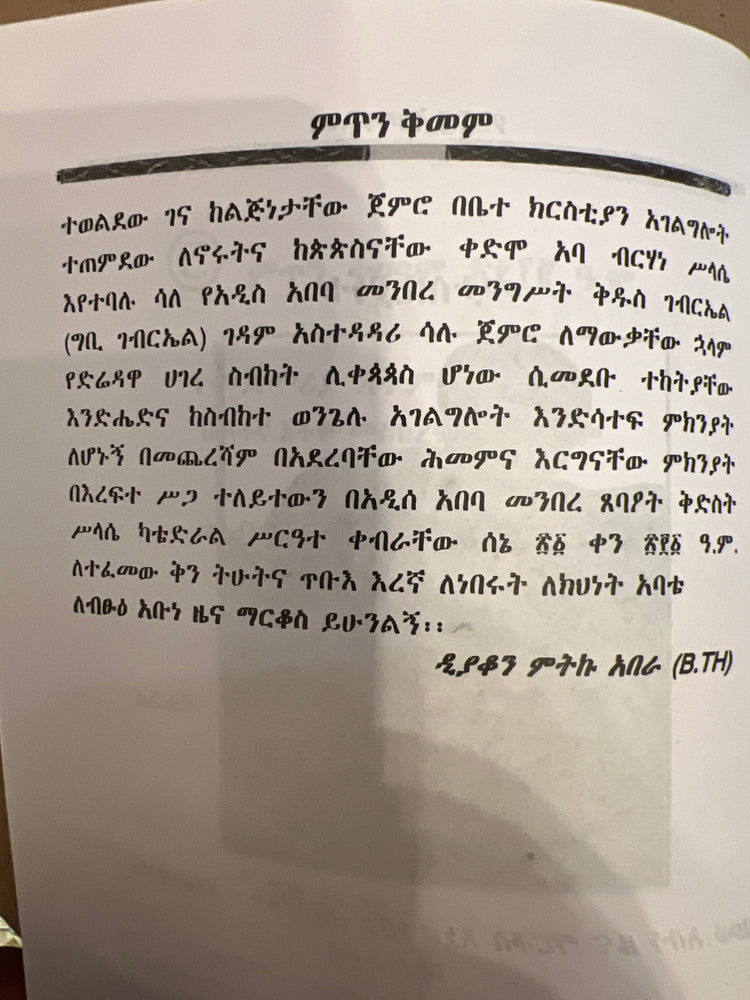 ምጥን ቅመም
ተወልደው ገና ከልጅነታቸው ጀምሮ በቤተ ክርስቲያን አገልግሎት
ተጠምደው ለኖሩትና ከጵጵስናቸው ቀድሞ አባ ብርሃነ ሥላሴ
እየተባሉ ሳለ የአዲስ አበባ መንበረ መንግሥት ቅዱስ ገብርኤል
(ግቢ ገብርኤል) ገዳም አስተዳዳሪ ሳሉ ጀምሮ ለማውቃቸው ኋላም
የድሬዳዋ ሀገረ ስብከት ሊቀጳጳስ ሆነው ሲመደቡ ተከትያቸው
እንድሔድና ከስብከተ ወንጌሉ አገልግሎት እንድሳተፍ ምክንያት
ለሆኑኝ በመጨረሻም በአደረባቸው ሕመምና እርግናቸው ምክንያት
በእረፍተ ሥጋ ተለይተውን በአዲስ አበባ መንበረ ጸባዖት ቅድስት
ሥላሴ ካቴድራል ሥርዓተ ቀብራቸው ሰኔ ቀን ዓ.ም.
ለተፈመው ቅን ትሁትና ጥቡእ እረኛ ለነበሩት ለክህነት አባቴ
ለብፁዕ አቡነ ዜና ማርቆስ ይሁንልኝ፡፡
ዲያቆን ምትኩ አበራ (B.TH)